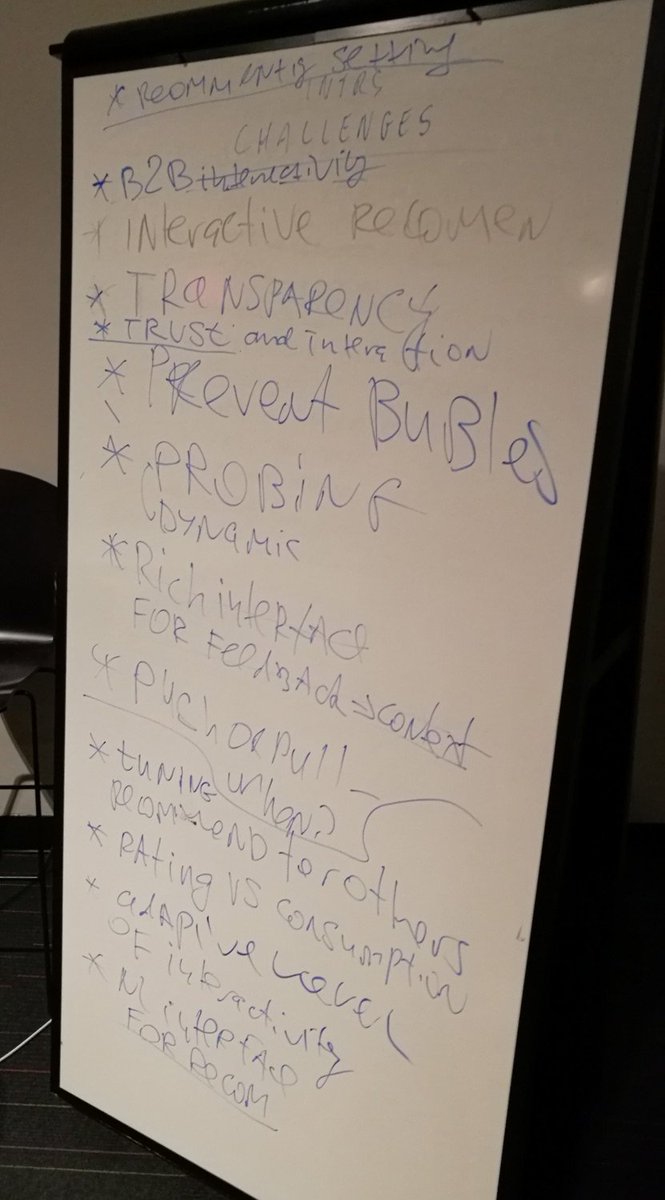 * RECOMMENtig setting
INTRS
CHALLENGES
* B2B interactivity
* INteractive Recommen
* TRaNSPARENCY
* TRUSt and interaction
* PRevent BuBles
* PROBiNG
DYNAMIC
* Rich interfAce
FOR FeedBAck => context
* PUCh OR pull -
when?
* tUNING
RecommEND for others
* RAting VS consumption
* aDAPtive Level
OF interactivity
* NL interFAce
FOR RECOM